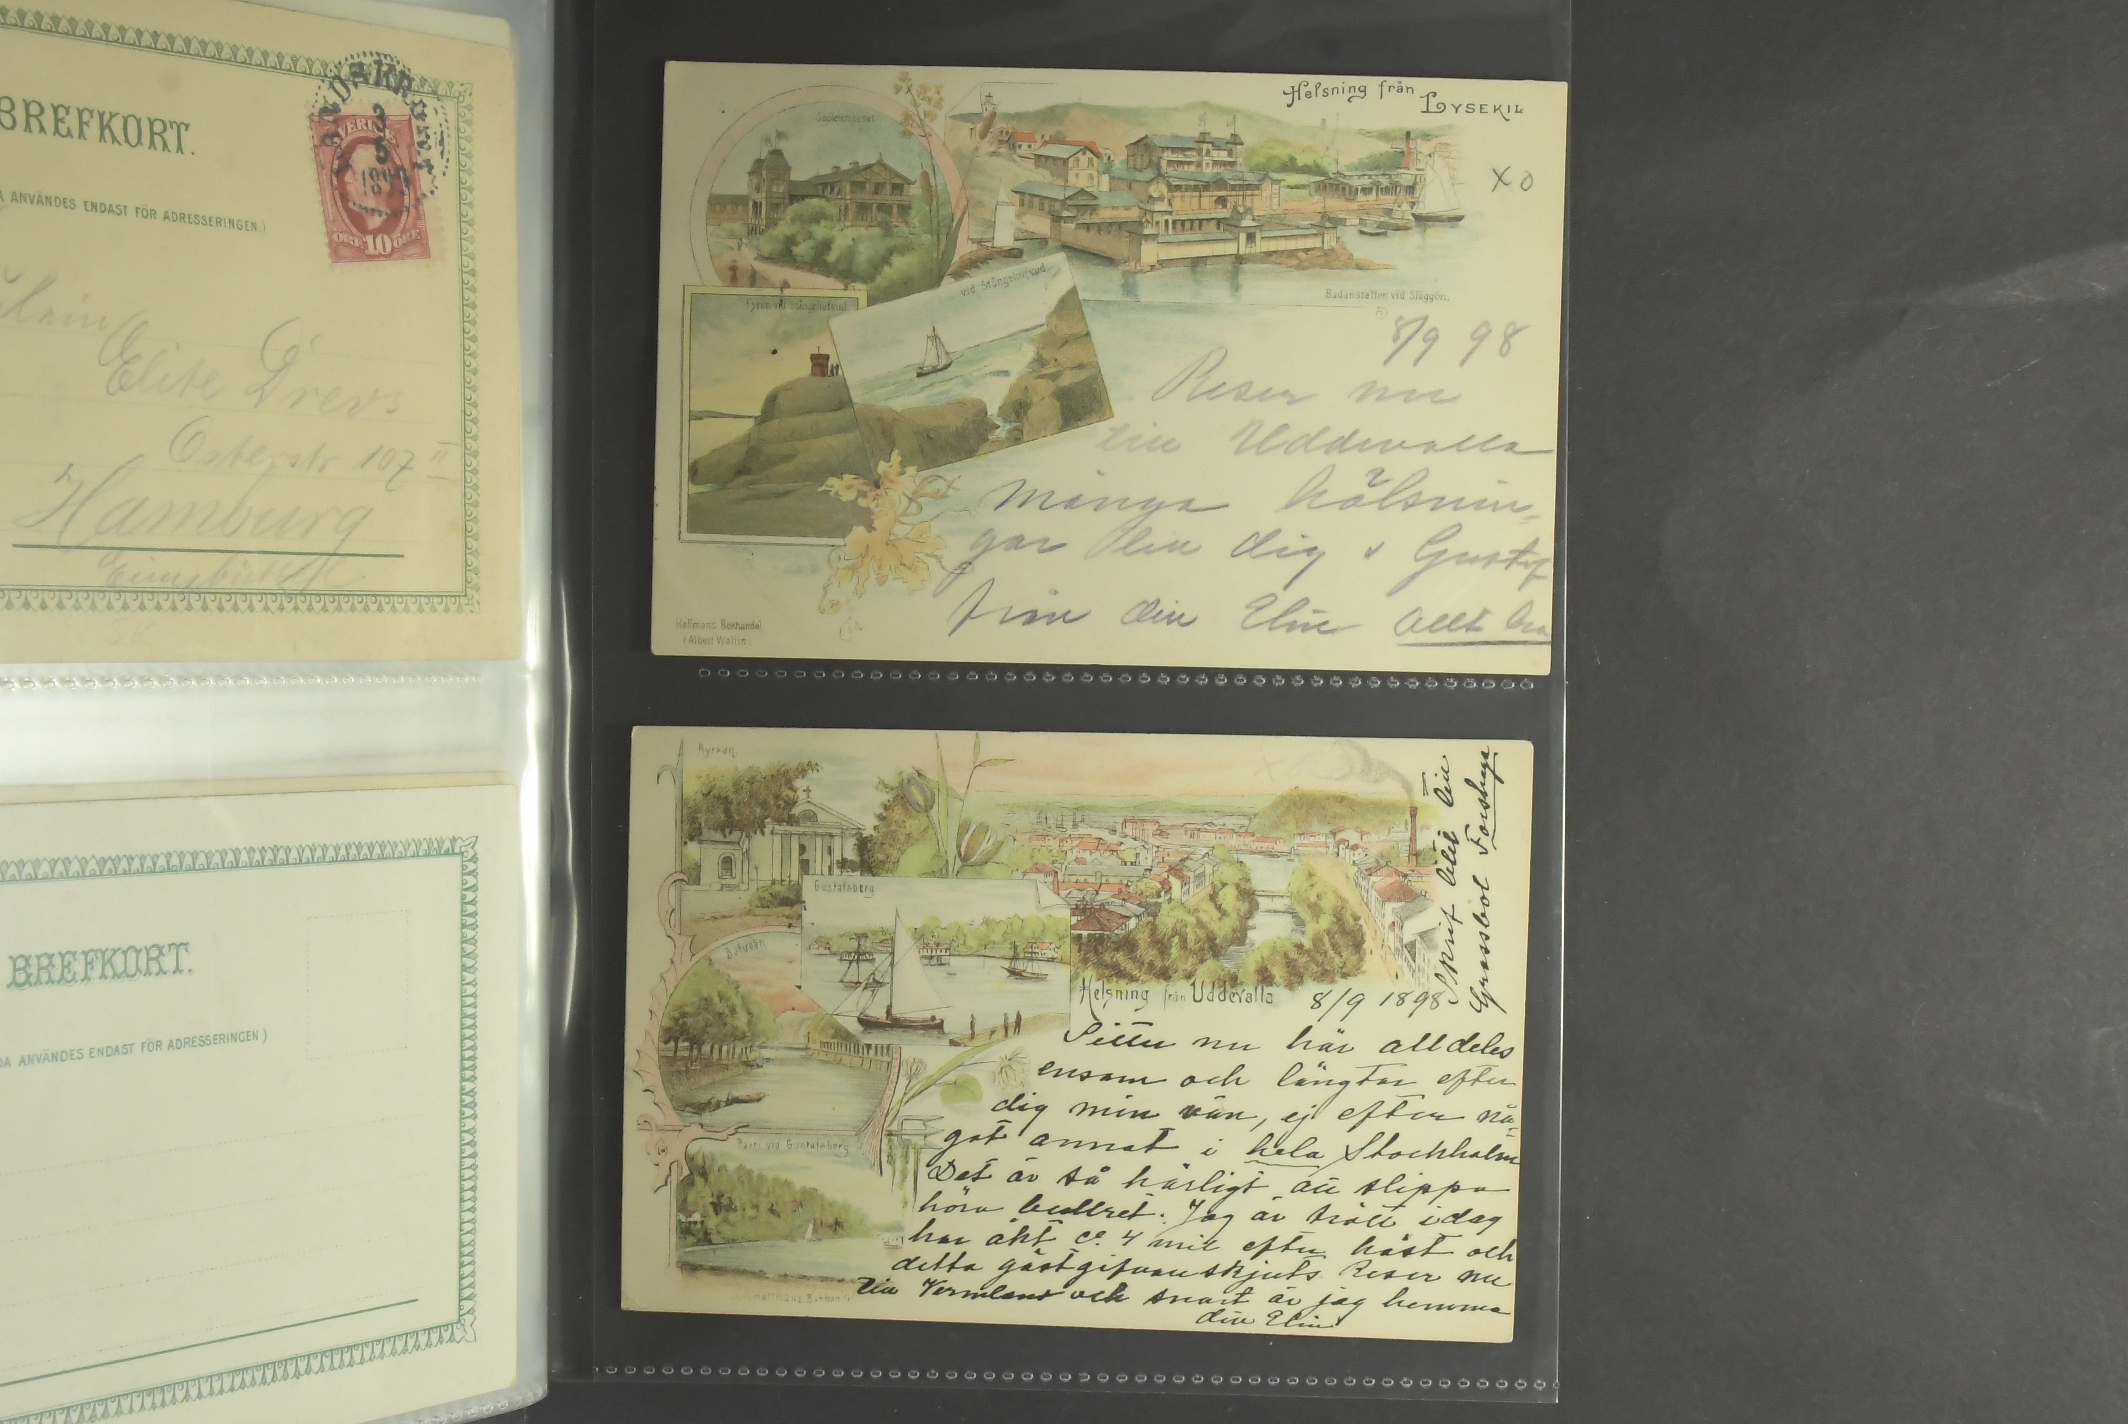 BREFKORT.
A ANVÄNDES ENDAST FÖR ADRESSERINGEN.)
SVERIGE
ÖRE 10 ÖRE
LANDSKRONA
3
5
Elite Drevs
Osterstr 107 II
Hamburg
BREFKORT.
DA ANVÄNDES ENDAST FÖR ADRESSERINGEN)
Helsning från
LYSEKIL
XO
Fyren vid Stångehufvud
vid Stångehufvud
Badanstalten vid Släggön.
8/9 98
Reser nu
till Uddevalla
Många hälsnin-
gar till dig & Gustaf
från din Elin Allt bra
Hallmans Bokhandel
(Albert Wallin)
Kyrkan.
Gustafsberg
Bäfveån
Parti vid Gustafsberg
Hallmans Bokhandel
Helsning från Uddevalla
8/9 1898
Skrif litet till
Grassbol Forshaga
Sitter nu här alldeles
ensam och längtar efter
dig min vän, ej efter nå-
got annat i hela Stockholm
Det är så härligt att slippa
höra bullret. Jag är trött idag
har åkt ca 4 mil efter häst och
detta gästgifvareskjuts. Reser nu
till Vermland och snart är jag hemma
din Elin